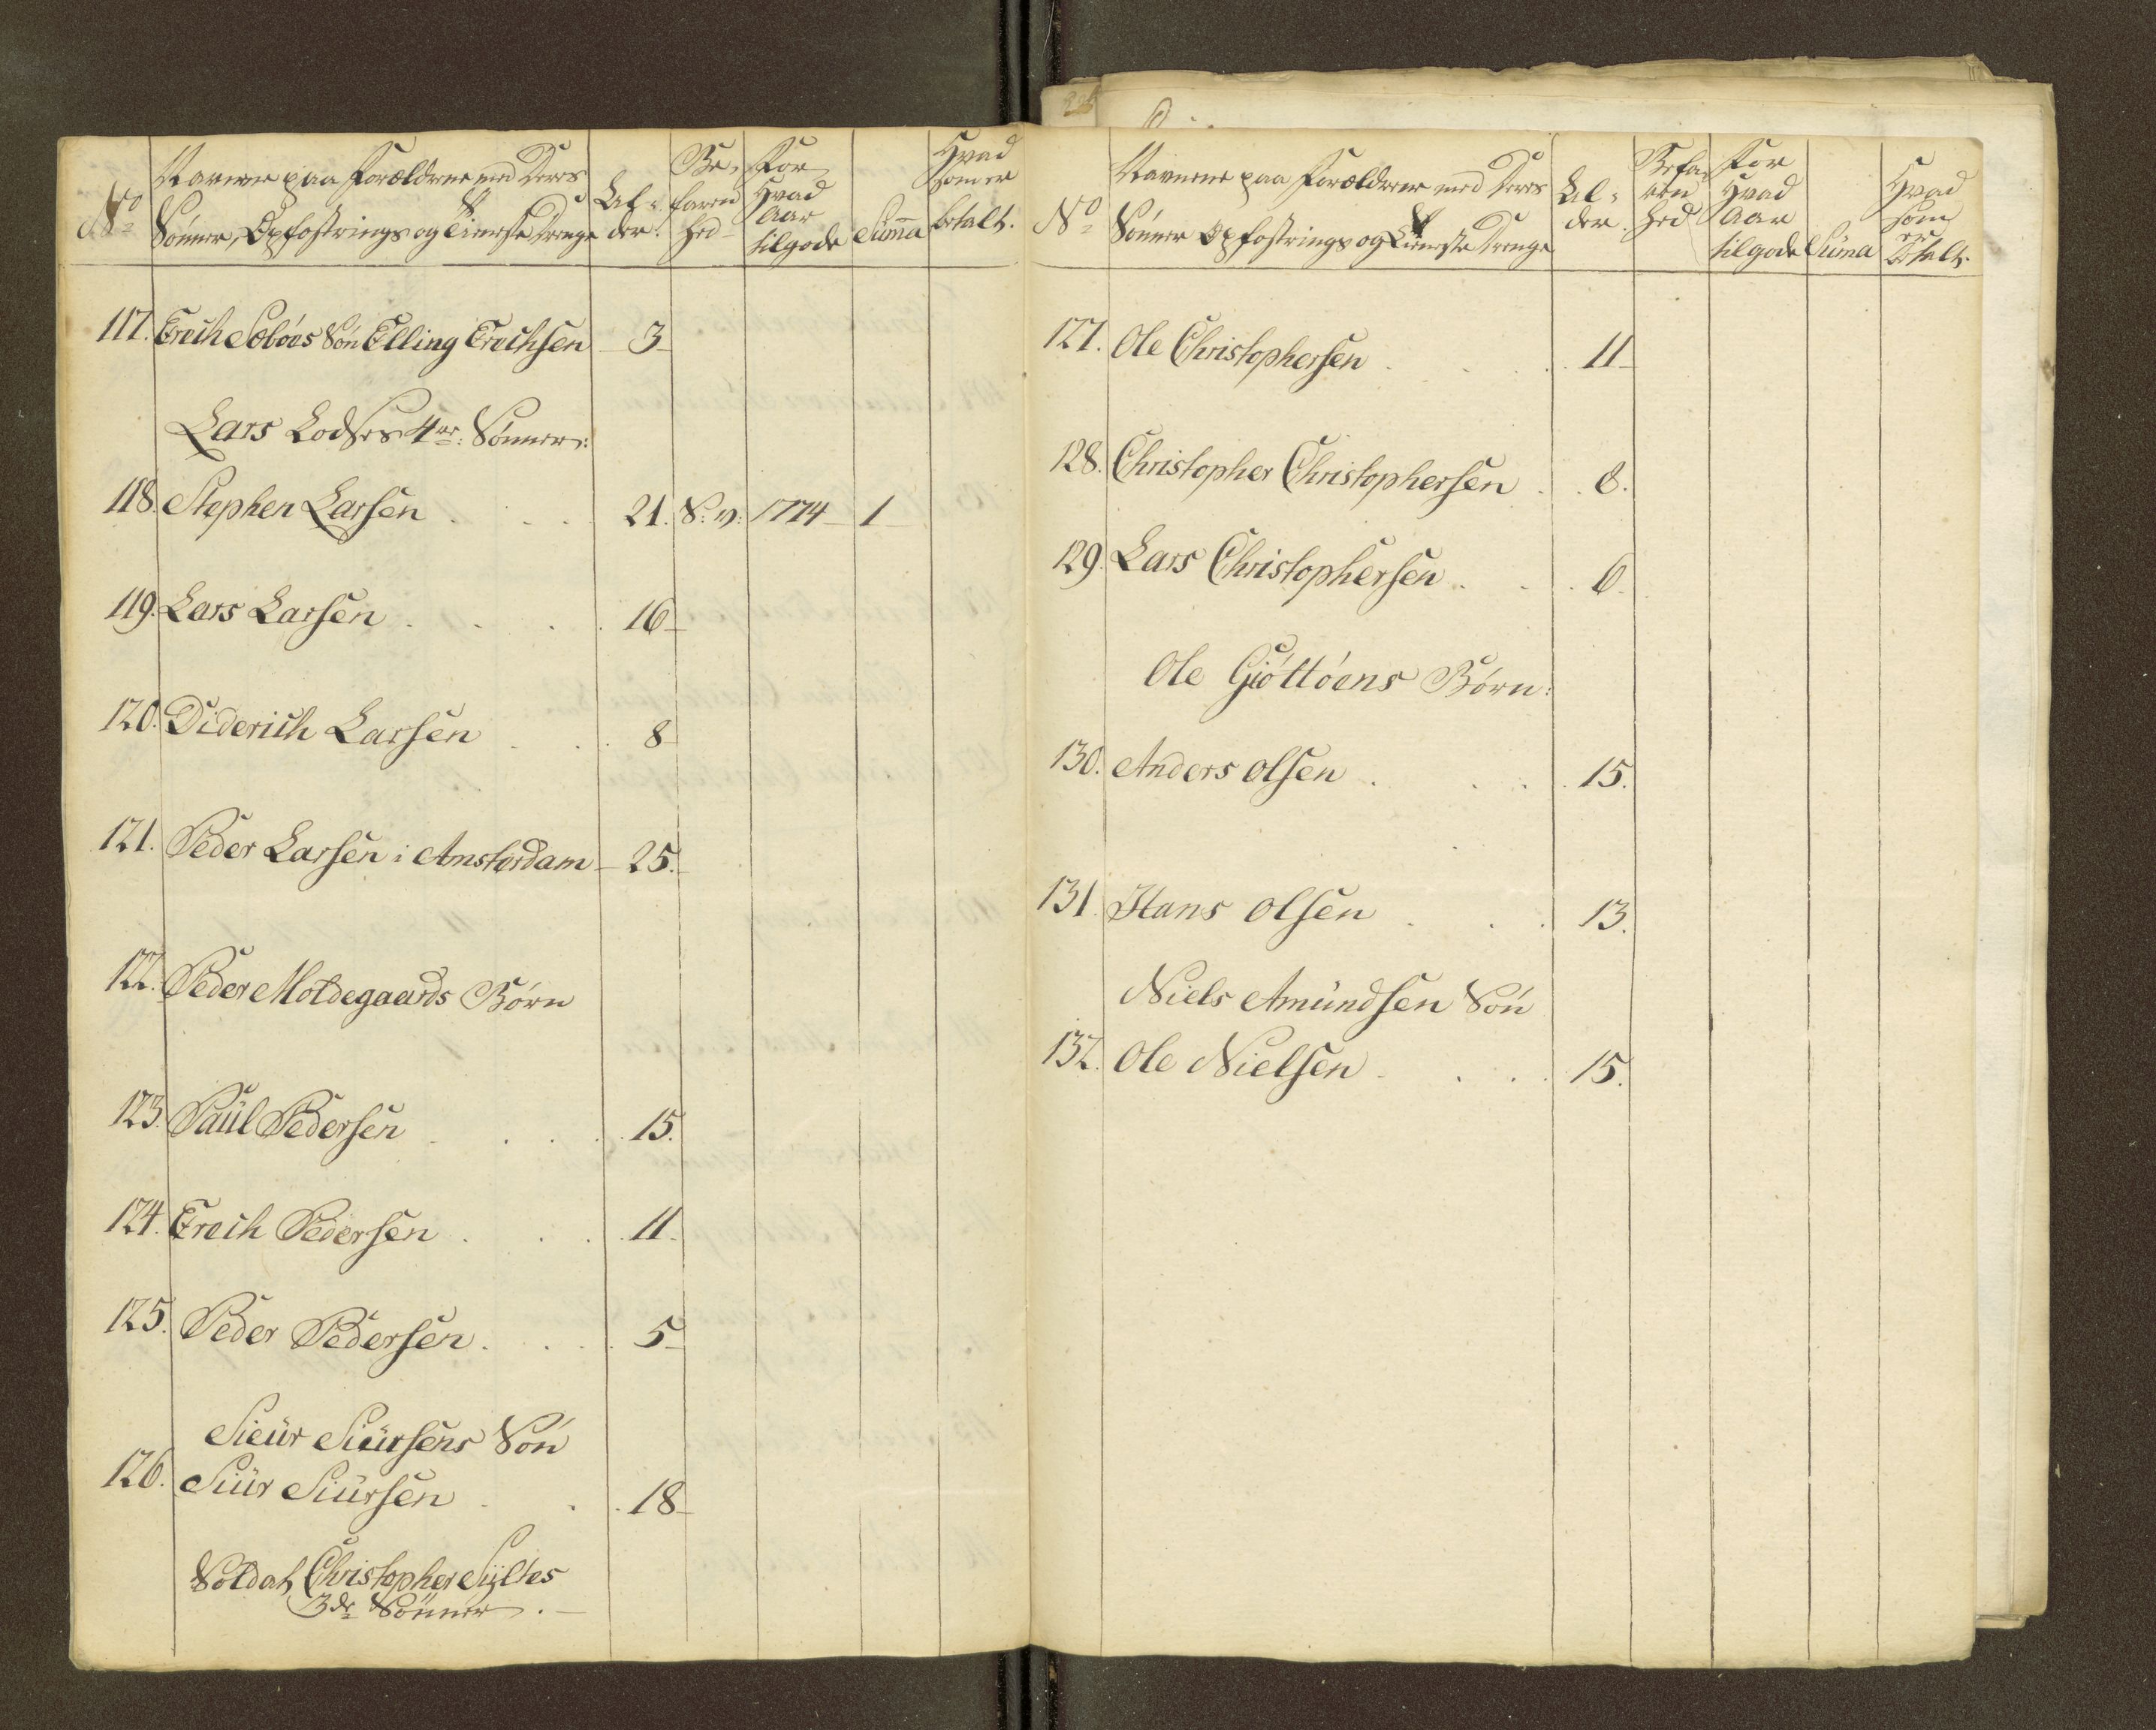 No
Navnene paa Forældrene med Deres
Sönner, Opfostrings og Tieneste Drenge
Al-
der.
Be-
faren
hed
For
Hvad
Aar
tilgode
Sum̄a
Hvad
som er
betalt.
117. Erech Sæbóes Són Elling Erechsen 3
Lars Lodses 4re: Sónner:
118. Stephen Larsen 21. S: v: 1774 1
119. Lars Larsen 16
120. Diderich Larsen 8
121. Peder Larsen i Amsterdam 25.
122. Peder Moldegaards Börn
123. Paül Pedersen 15.
124. Erech Pedersen 11
125. Peder Pedersen 5
Sieür Sieürsens Són
126. Siür Siürsen 18
Soldat, Christopher Sÿltes
3de Sönner.
No
Navnene paa Forældrene med Deres
Sónner Opfostrings og Tieneste Drenge
Al-
der.
Befa-
ren
hed
For
Hvad
Aar
tilgode
Süma
Hvad
som
er
betalt.
127. Ole Christophersen 11
128. Christopher Christophersen 8.
129. Lars Christophersen 6.
Ole Giöttóens Bórn:
130. Anders Olsen 15.
131. Hans Olsen 13.
Niels Amündsen Són
132. Ole Nielsen 15.